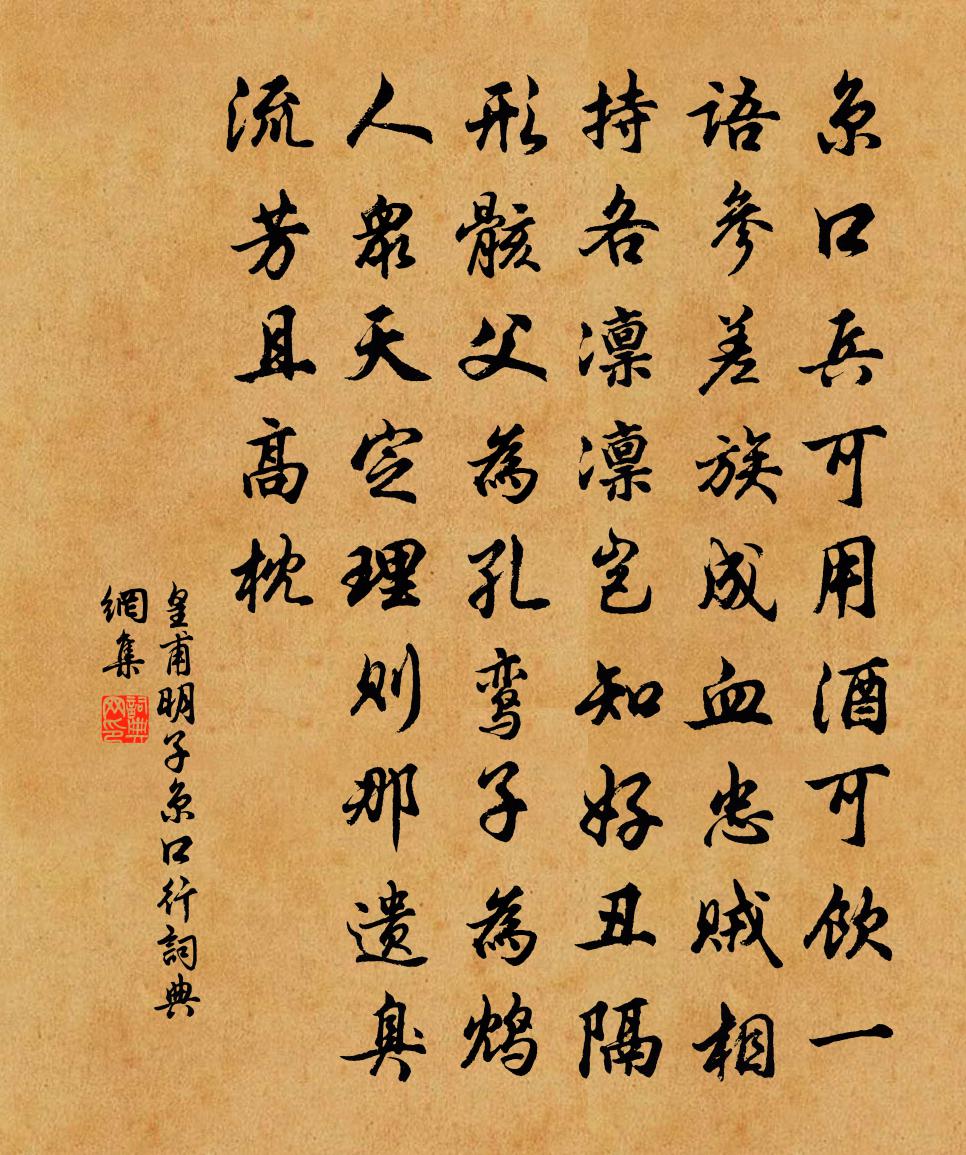 京口兵可用酒可飲一
語參差族成血忠賊相
持各凜凜岂知好丑隔
形骸父為孔鸾子為鸩
人眾天定理則那遺臭
流芳且高枕
皇甫明子京口行詞典
網集
詞典網印